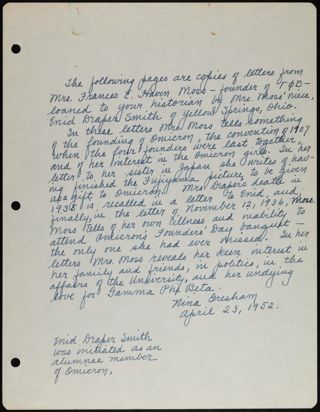 The following pages are copies of letters from
Mrs. Frances E. Haven Moss - founder of ΓΦΒ -
loaned to your historian by Mrs. Moss' niece,
Enid Draper Smith of Yellow Springs, Ohio.
In these letters Mrs. Moss tells something
of the founding of Omicron, the convention of 1907
when the four founders were last together,
and of her interest in the Omicron girls. In her
letter to her sister in Japan she writes of hav-
ing finished the Fujiyama picture to be given
as a gift to Omicron. Mrs. Draper's death in
1935 is recalled in a letter to Enid and,
finally, in the letter of November 12, 1936, Mrs.
Moss tells of her own illness and inability to
attend Omicron's Founders' Day banquet -
the only one she had ever missed. In her
letters Mrs. Moss reveals her keen interest in
her family and friends, in politics, in the
affairs of the University, and her undying
love for Gamma Phi Beta.
Nina Gresham
April 23, 1952.
Enid Draper Smith
was initiated as an
alumnae member
of Omicron.